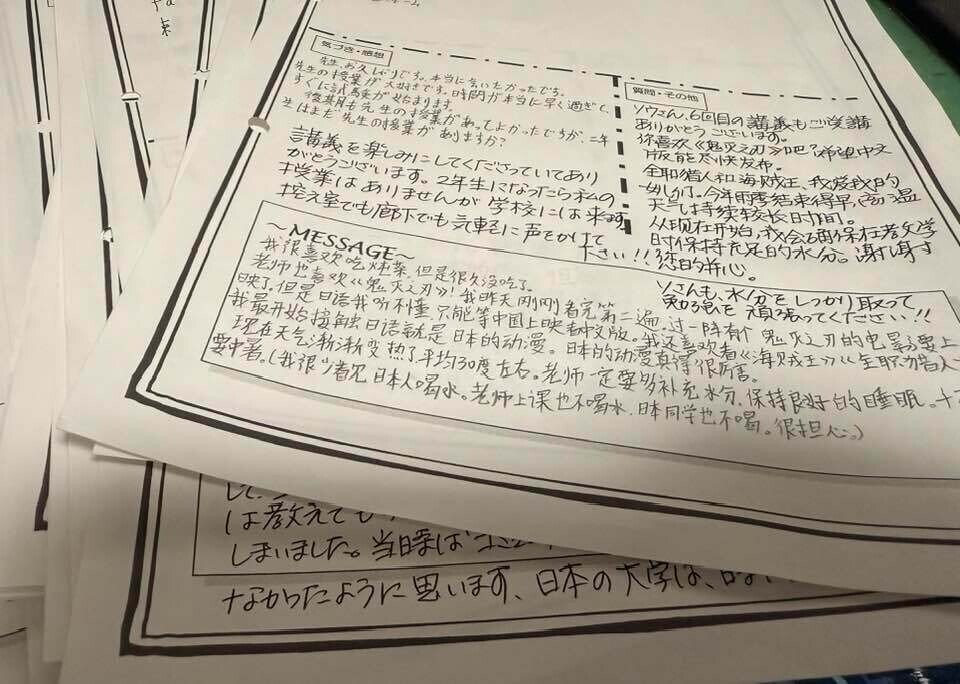 気づき・感想
先生、お久しぶりです。本当に会いたかったです。
先生の授業が大好きです。時間が本当に早く過ぎて、
すぐに試験が始まります。
後期も先生の授業があってよかったですが、二年
生はまだ先生の授業がありますか?
講義を楽しみにしてくださっていてあり
がとうございます。2年生になったら私の
授業はありませんが学校には来ます
控え室でも廊下でも気軽に声をかけて
下さい!!
質問・その他
ソウさん、6回目の講義もご受講
ありがとうございます。
你喜欢《鬼灭之刃》吧?希望中文
版能尽快发布。
全职猎人和海贼王、我爱我的
幼儿们。今年雨季结束得早,高温
天气持续较长时间。
从现在开始,我会确保在教学
时保持充足的水分。谢谢
您的关心。
ソさんも、水分をしっかり取って
勉強を頑張ってください!!
~MESSAGE~
我很喜欢吃炖菜,但是很久没吃了。
老师也喜欢《鬼灭之刃》!我昨天刚刚看完第二遍,过一阵有个鬼灭之刃的电影要上
映了,但是日语我听不懂,只能等中国上映看中文版。我还喜欢看《海贼王》《全职猎人》
我最开始接触日语就是日本的动漫。日本的动漫真得很厉害。
现在天气渐渐变热了平均30度左右。老师一定要多补充水分,保持良好的睡眠。
要中暑。(我很少看见日本人喝水。老师上课也不喝水,日本同学也不喝。很担心。)
は教えても
しまいました。当時は
なかったように思います、日本の大学は、